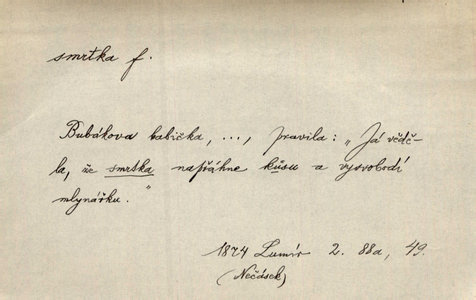 smrtka f.
Bubákova babička, ..., pravila: „Já vědě-
la, že smrtka napřáhne kůsu a vysvobodí
mlynářku."
1874 Lumír 2. 88a, 49.
(Nečásek)